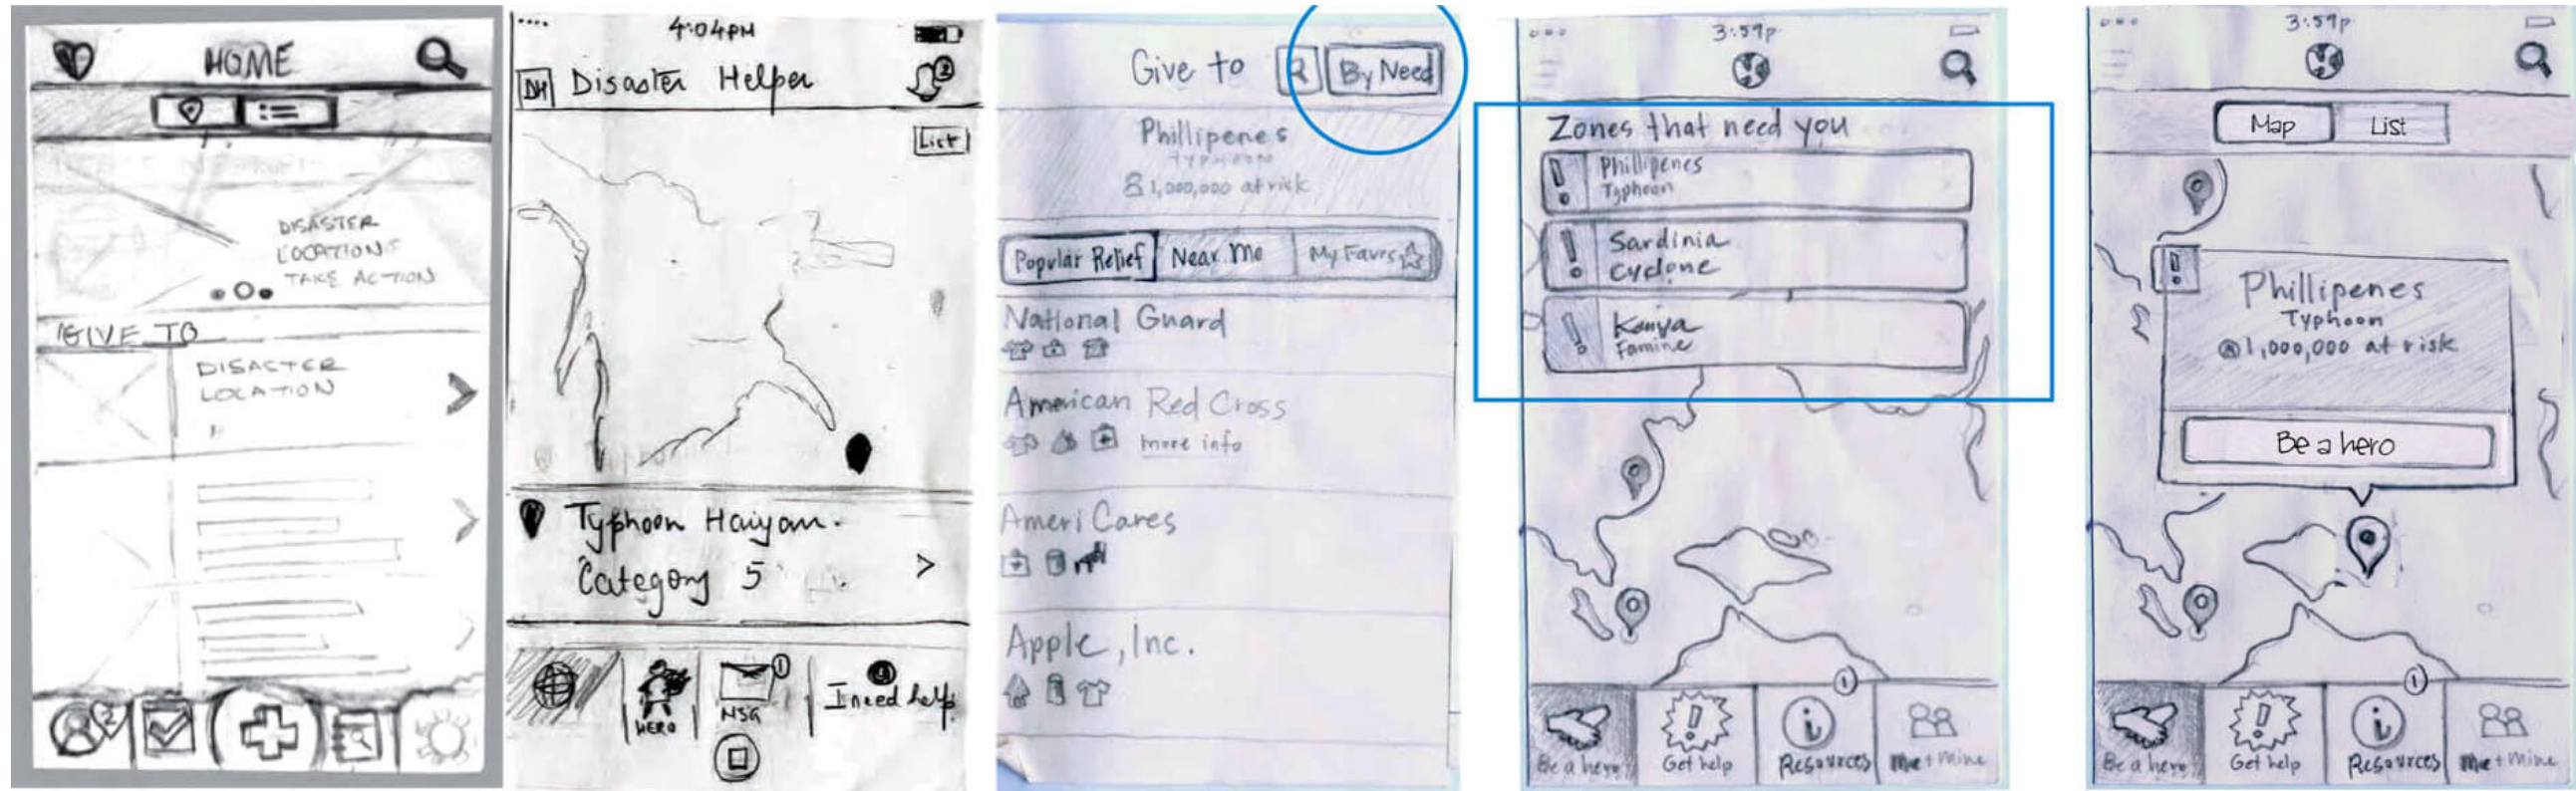 HOME
DISASTER
LOCATION
TAKE ACTION
GIVE TO
DISASTER
LOCATION
2
4:04PM
DH Disaster Helper
2
List
Typhoon Haiyan.
Category 5
>
HERO
1
MSG
I need help
Give to
By Need
Phillipenes
TYPHOON
1,000,000 at risk
Popular Relief
Near Me
My Faves
National Guard
American Red Cross
more info
AmeriCares
Apple, Inc.
3:59p
Zones that need you
! Phillipenes
Typhoon
! Sardinia
Cyclone
! Kenya
Famine
1
Be a hero
! Get help
i Resources
Me + Mine
3:59p
Map
List
!
Phillipenes
Typhoon
1,000,000 at risk
Be a hero
1
Be a hero
! Get help
i Resources
Me + Mine